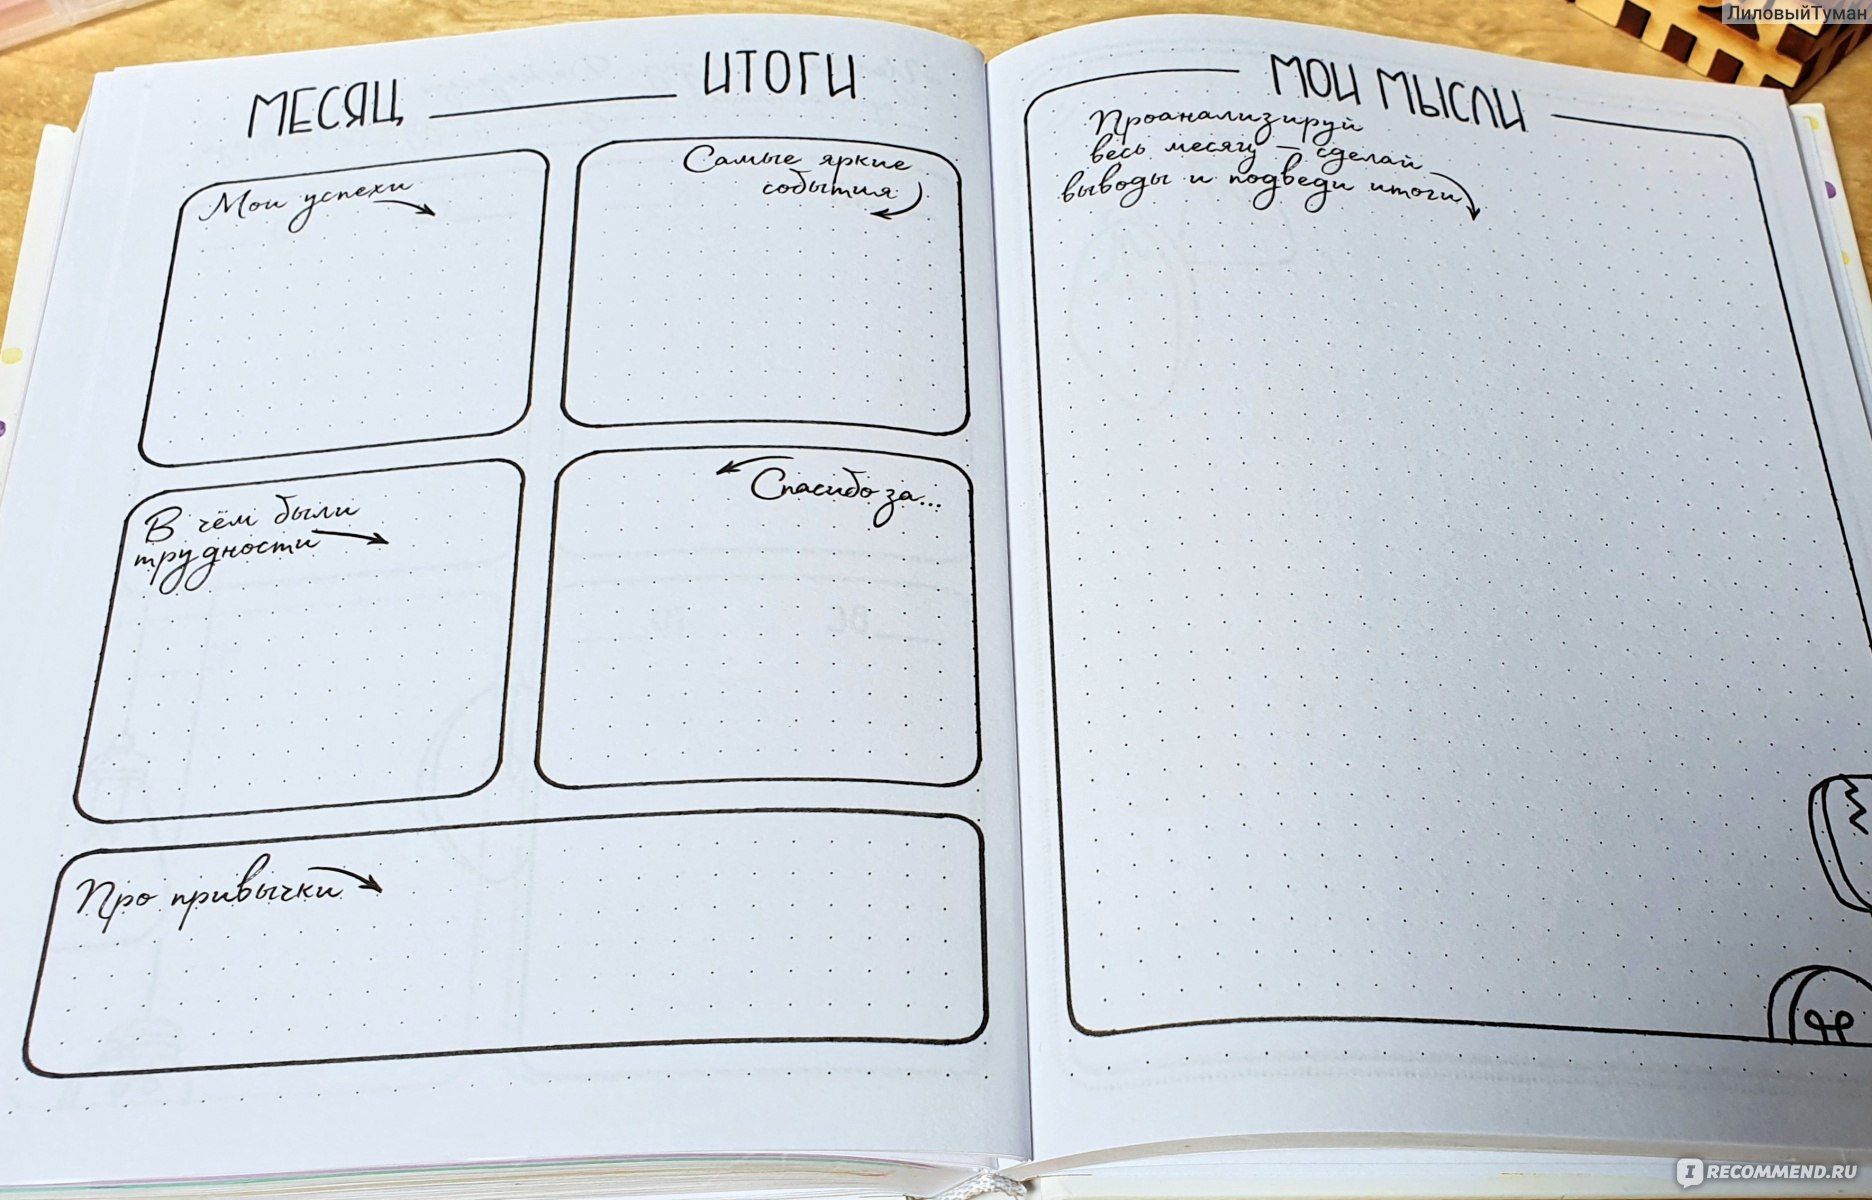 ЛиловыйТуман
МЕСЯЦ ИТОГИ
Мои успехи
Самые яркие
события
В чём были
трудности
Спасибо за...
Про привычки
МОИ МЫСЛИ
Проанализируй
весь месяц – сделай
выводы и подведи итоги
IRECOMMEND.RU